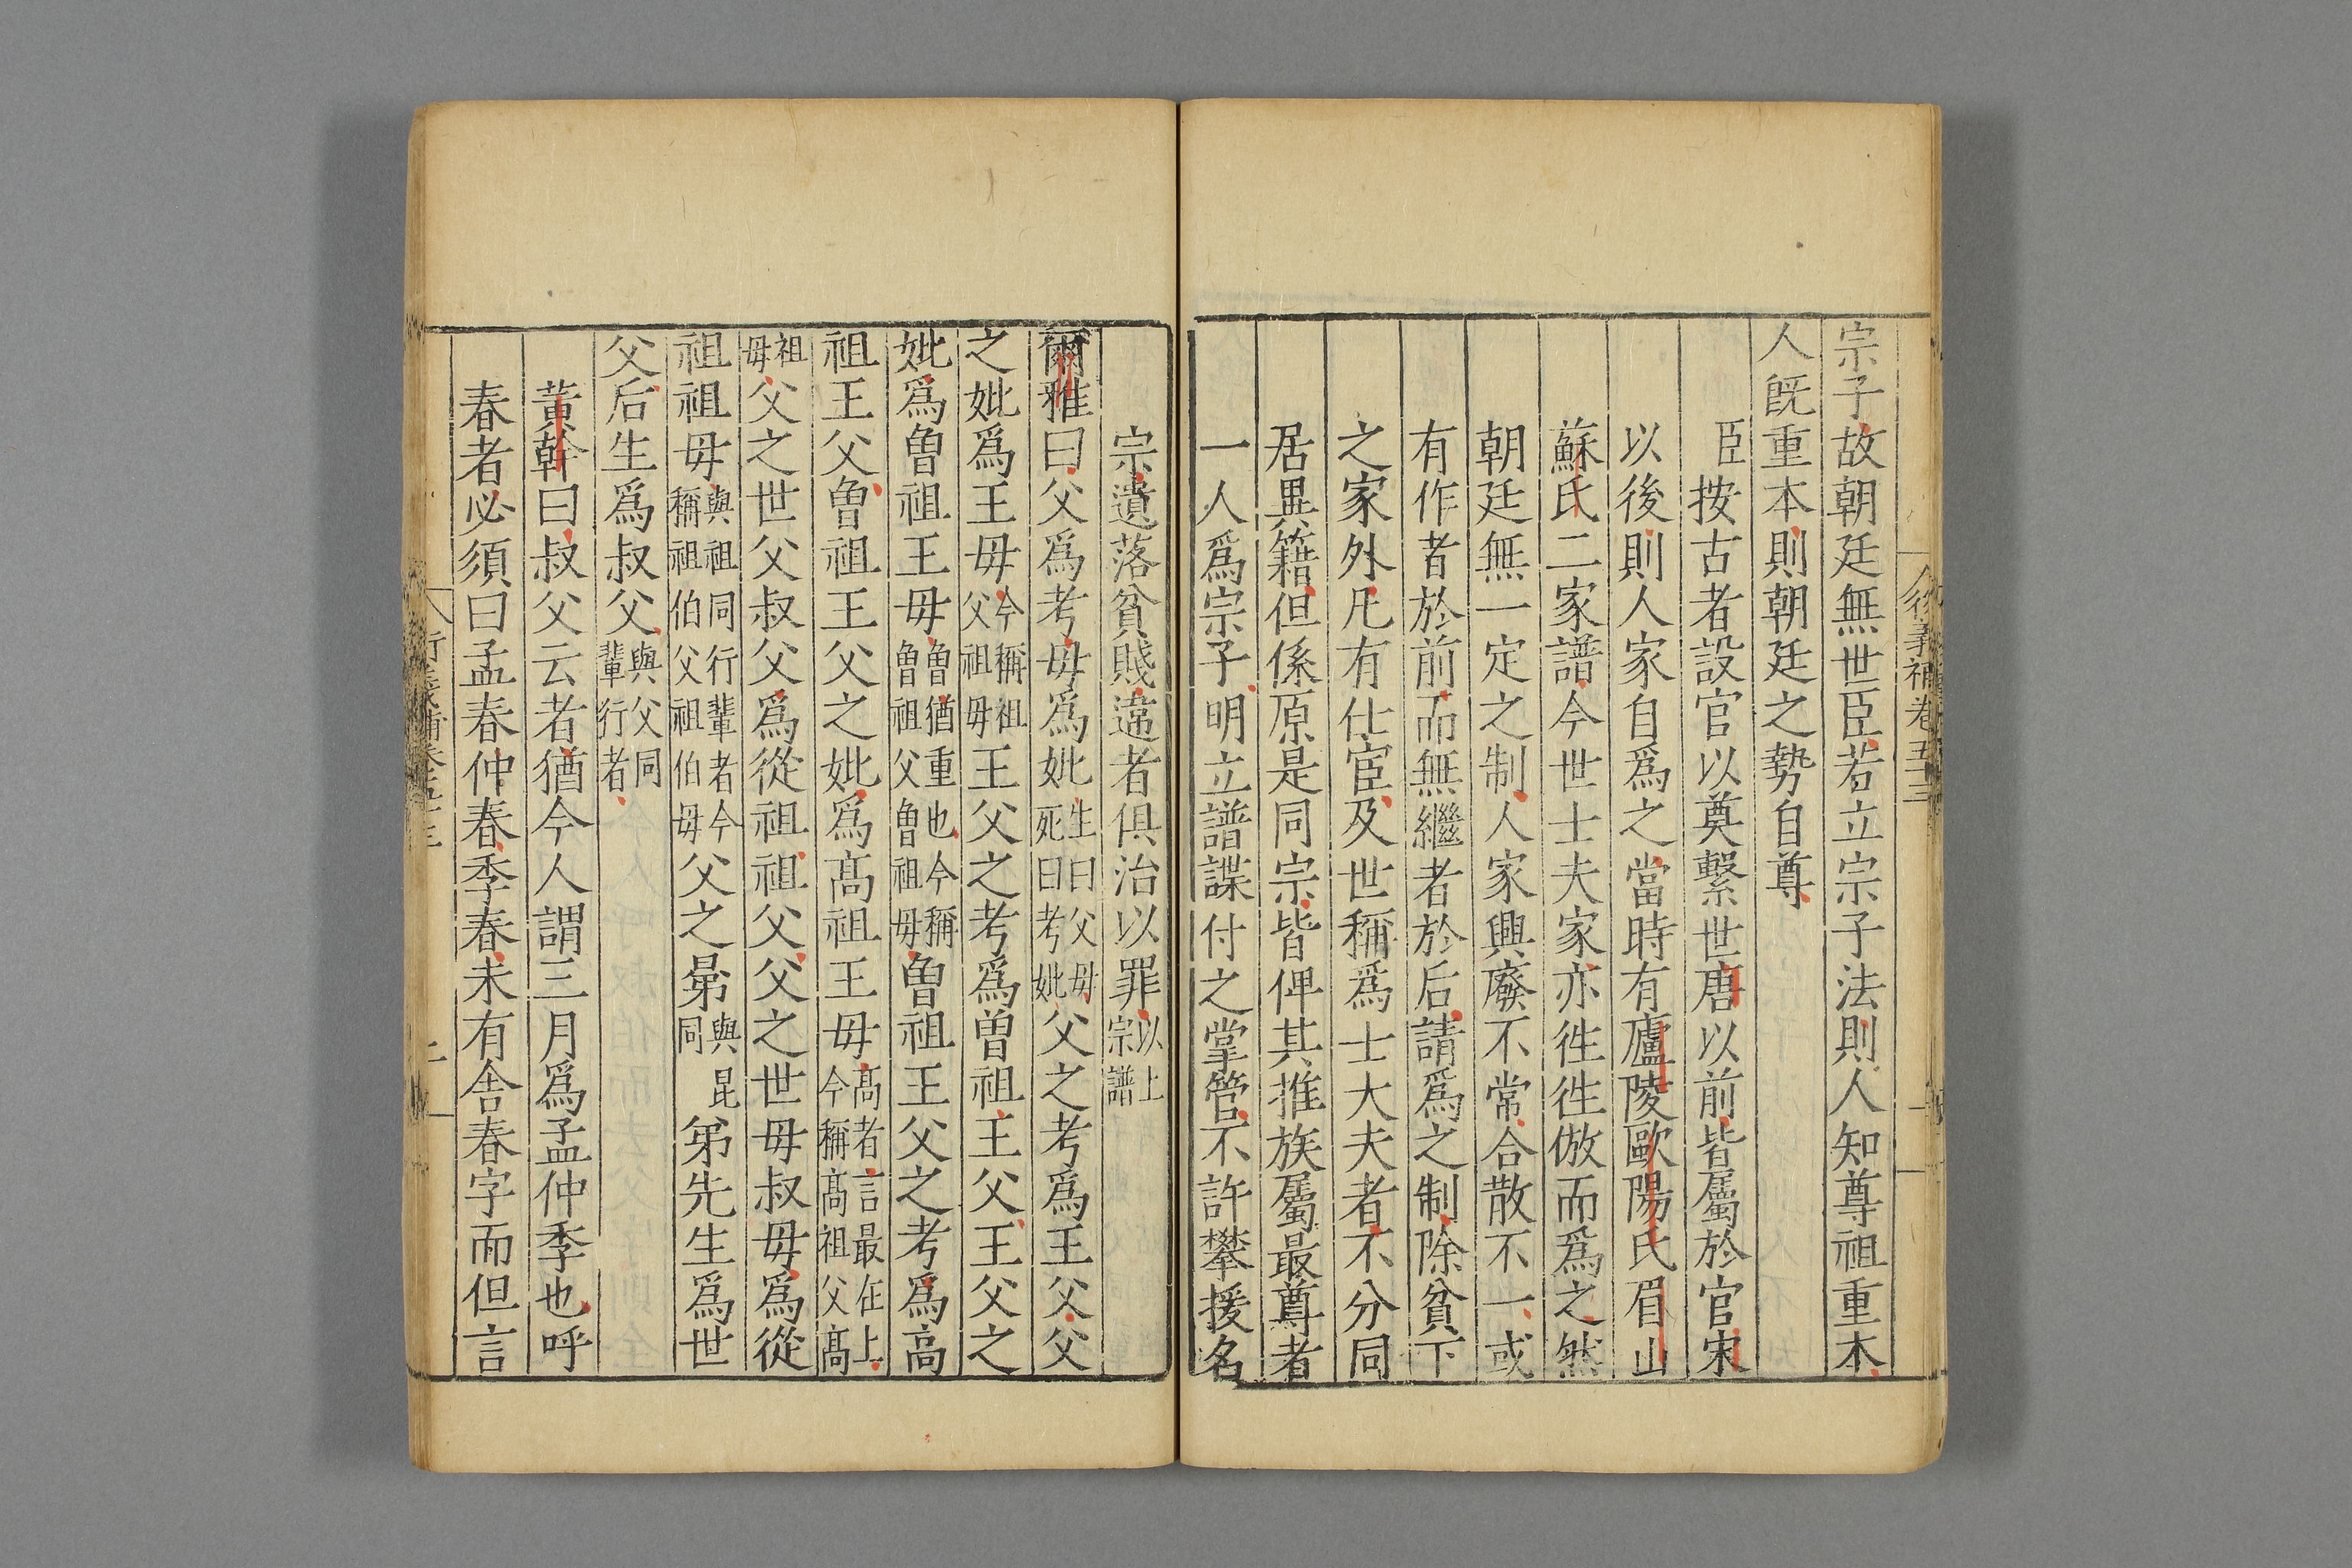 宗子故朝廷無世臣若立宗子法則人知尊祖重本
人既重本則朝廷之勢自尊
臣按古者設官以奠繫世唐以前皆屬於官宋
以後則人家自爲之當時有廬陵歐陽氏眉山
蘇氏二家譜今世士夫家亦徃徃倣而爲之然
朝廷無一定之制人家興廢不常合散不一或
有作者於前而無繼者於后請爲之制除貧下
之家外凡有仕宦及世稱爲士大夫者不分同
居異籍但係原是同宗皆俾其推族屬最尊者
一人爲宗子明立譜諜付之掌管不許攀援名
宗遺落貧賤違者俱治以罪以上宗譜
爾雅曰父爲考母爲妣生曰父母死曰考妣父之考爲王父父
之妣爲王母今稱祖父祖母王父之考爲曽祖王父王父之
妣爲曽祖王母曽猶重也今稱曽祖父曽祖母曽祖王父之考爲高
祖王父曽祖王父之妣爲髙祖王母髙者言最在上今稱髙祖父髙
祖母父之世父叔父爲從祖祖父父之世母叔母爲從
祖祖母與祖同行輩者今稱祖伯父祖伯母父之晜與昆同弟先生爲世
父后生爲叔父與父同輩行者
黃幹曰叔父云者猶今人謂三月爲孟仲季也呼
春者必須曰孟春仲春季春未有舎春字而但言